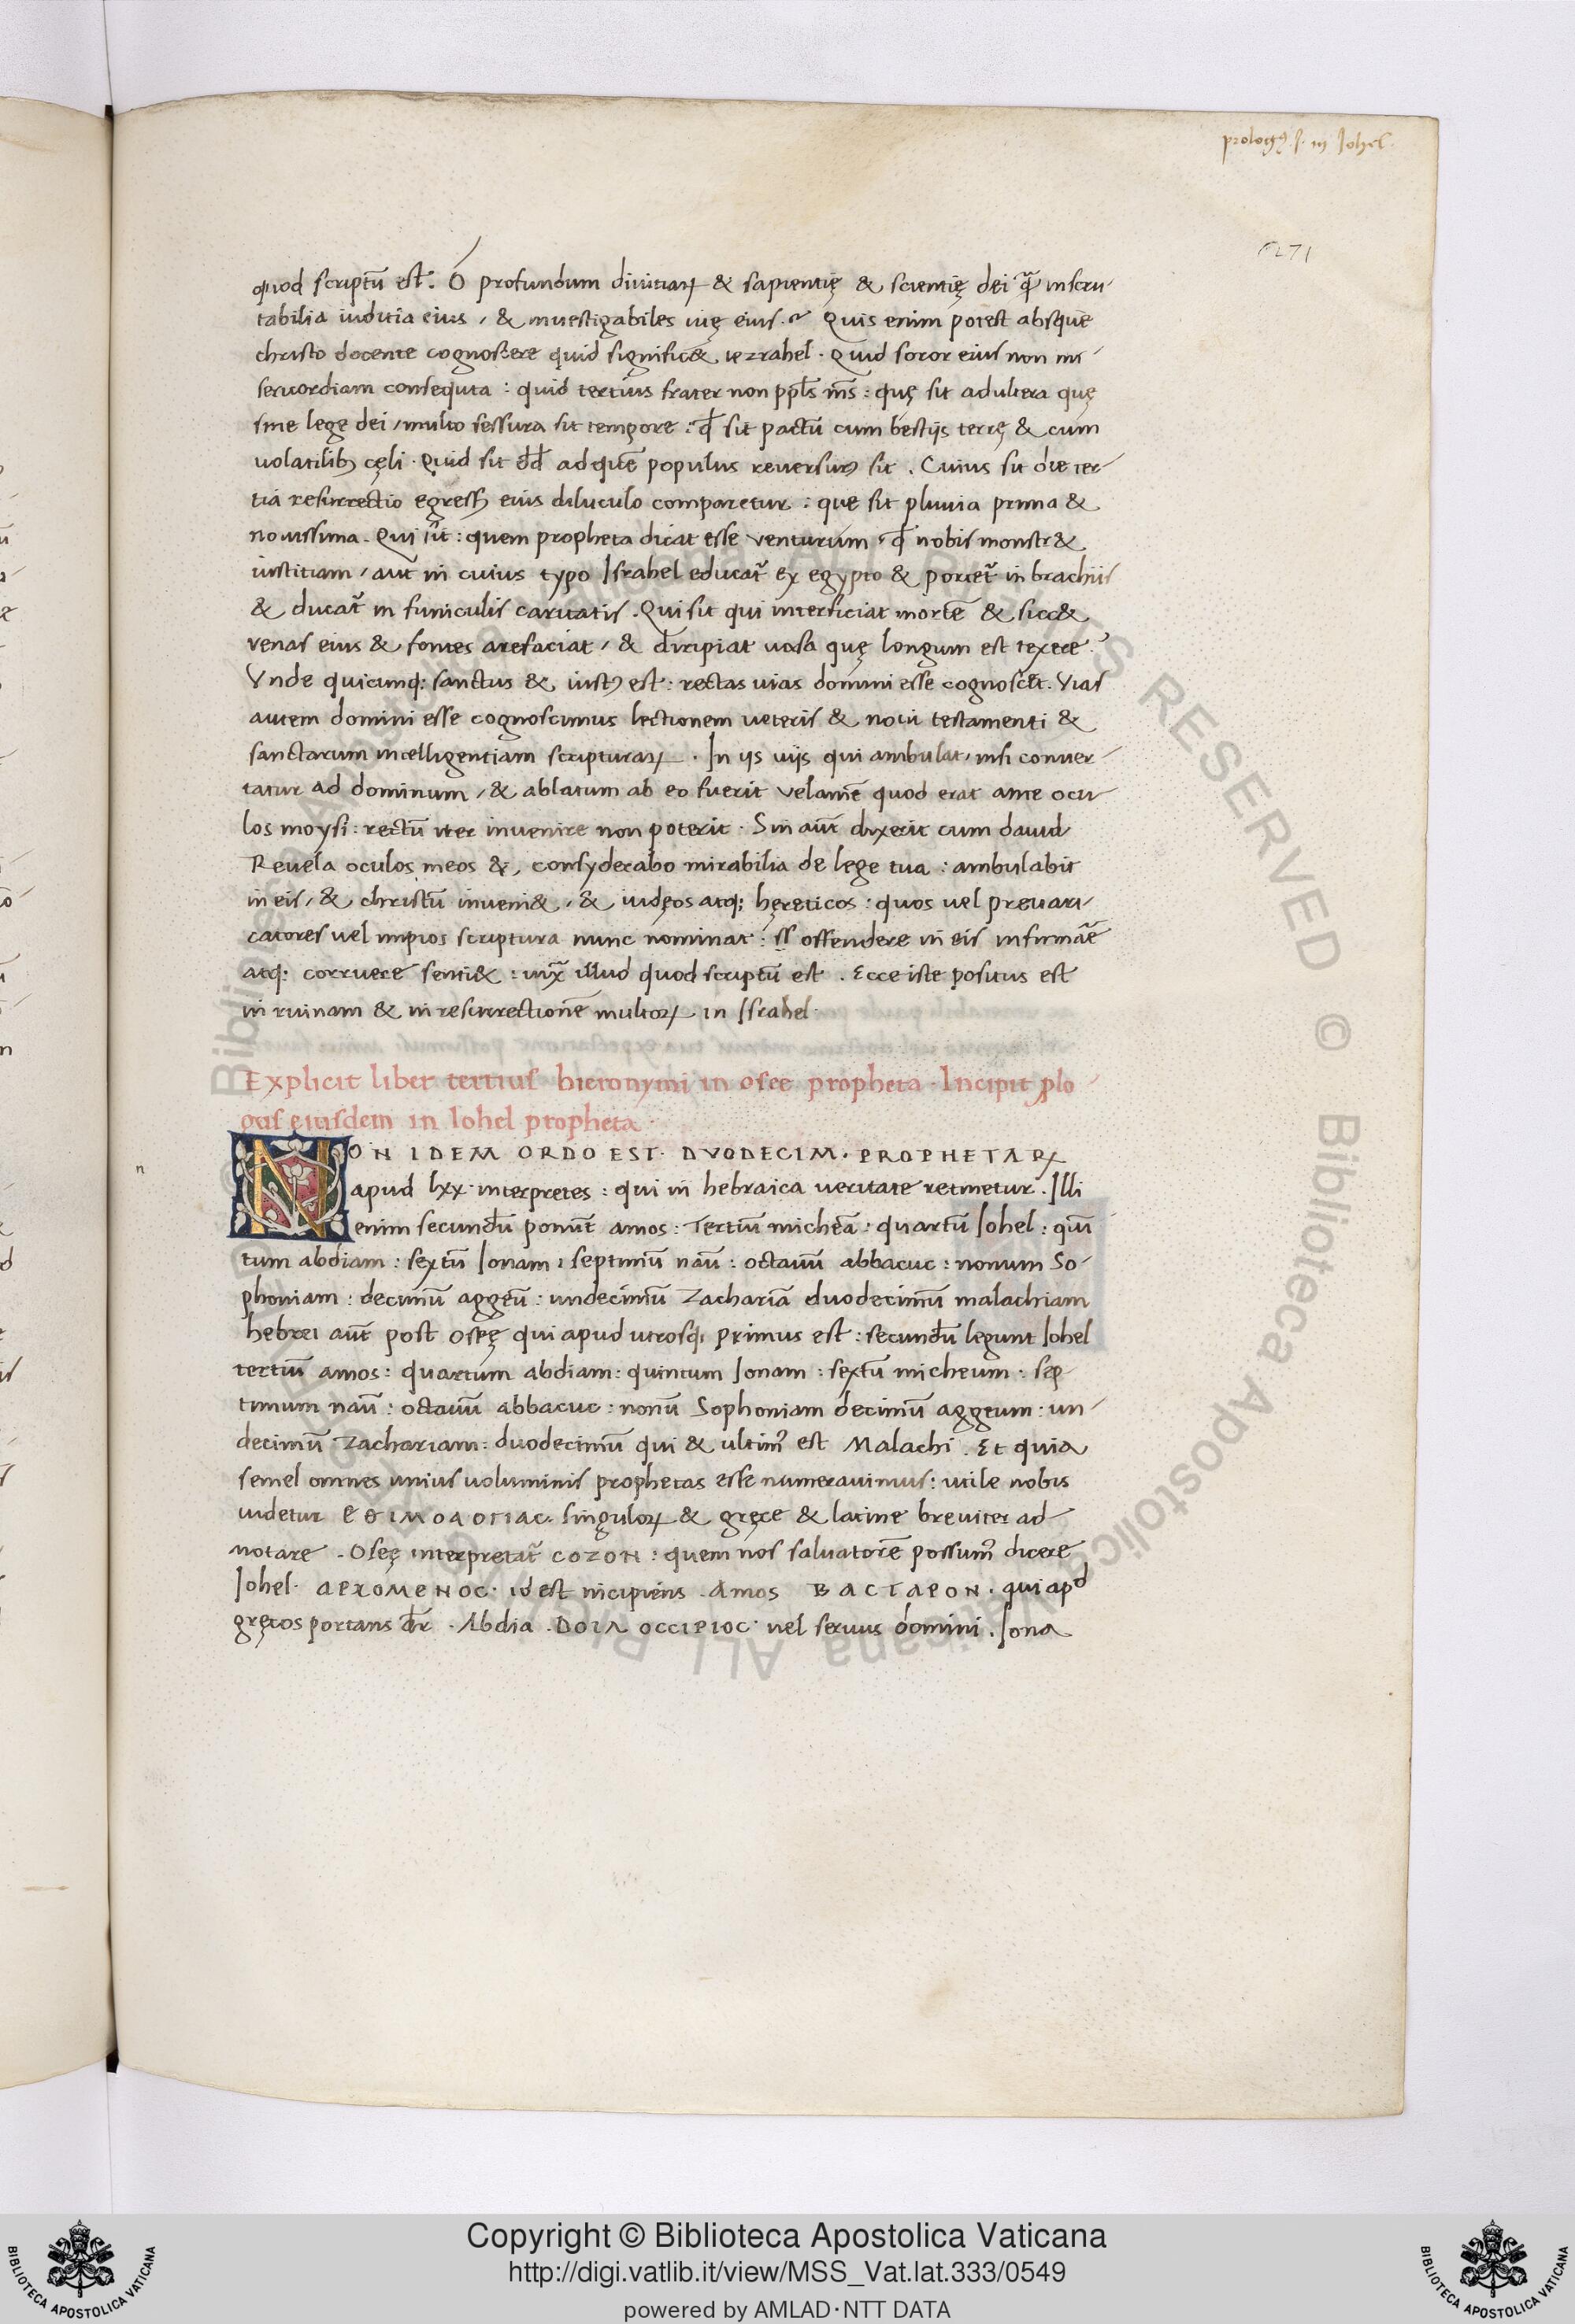 prologꝰ .s. in Johel.
271
quod scriptū est. O profundum diuitiarꝝ & sapientię & scientię dei q̃ inscru
tabilia iuditia eius, & inuestigabiles uię eius. Quis enim potest absque
christo docente cognoscere quid signific& iezrahel. Quid soror eius non mi
sericordiam consequta : quid tertius frater non ppl̄s m̄s : quę sit adultera quę
sine lege dei, multo sessura sit tempore : qđ sit pactū cum bestijs terrę & cum
uolatilibꝫ cęli. Quid sit dđ ad quē populus reuersurꝰ sit. Cuius sit die ter
tia resurrectio egressꝫ eius diluculo comparetur : que sit pluuia prima &
nouissima. Qui sit : quem propheta dicat esse venturum, qđ nobis monstr&
iustitiam, aut in cuius typo Israhel educat̃ ex egypto & portet̃ in brachiis
& ducat̃ in funiculis caritatis. Qui sit qui interficiat mortē & sicc&
venas eius & fontes arefaciat, & diripiat uasa quę longum est texere.
Vnde quicunqꝫ sanctus & iustꝰ est : rectas uias domini esse cognoscet. Vias
autem domini esse cognoscimus lectionem ueteris & noui testamenti &
sanctarum intelligentiam scripturarꝝ. In ijs uijs qui ambulat, nisi conuer
tatur ad dominum, & ablatum ab eo fuerit velamē quod erat ante ocu
los moysi : rectū iter inuenire non poterit. Sin aūt dixerit cum dauid
Reuela oculos meos &, consyderabo mirabilia de lege tua : ambulabit
in eis, & christū inueni&, & iudęos atqꝫ hęreticos : quos uel preuari
catores uel impios scriptura nunc nominat : offendere in eis infirmāe
atqꝫ corruere senti& : iuxͣ illud quod scriptū est. Ecce iste positus est
in ruinam & in resurrectionē multorꝝ in Israhel.
Explicit liber tertius hieronymi in osee propheta. Incipit plo
gus eiusdem in Iohel propheta.
NON IDEM ORDO EST. DVODECIM. PROPHETARꝜ
apud lxx. interpretes : qui in hebraica ueritate retinetur. Illi
enim secundū ponūt amos : Tertiū micheā : quartū Johel : quī
tum abdiam : sextū Jonam : septimū naū : octauū abbacuc : nonum So
phoniam : decimū aggeū : undecimū Zachariā duodecimū malachiam
hebrei aūt post Oseę qui apud utrosqꝫ primus est : secundū legunt Johel
tertiū amos : quartum abdiam : quintum Jonam : sextū micheum : sep
timum naū : octauū abbacuc : nonū Sophoniam decimū aggeum : un
decimū Zachariam : duodecimū qui & ultimꝰ est Malachi. Et quia
semel omnes unius uoluminis prophetas esse numerauimus : utile nobis
uidetur ΕΘΙΜΟΛΟΓΙΑC. singulorꝝ & gręce & latine breuiter ad
notare. Oseę interpretat̃ CΟΖΟΝ : quem nos saluatorē possumꝰ dicere
Johel. ΑΡΧΟΜΕΝΟC. id est incipiens. Amos ΒΑCΤΑΡΟΝ. qui apᵈ
gręcos portans dr̄. Abdia. ΔΟΙΛ ΟCCΙΡΙΟC uel seruus domini. Jona
n
Copyright © Biblioteca Apostolica Vaticana
http://digi.vatlib.it/view/MSS_Vat.lat.333/0549
powered by AMLAD·NTT DATA
BIBLIOTECA APOSTOLICA VATICANA
BIBLIOTECA APOSTOLICA VATICANA